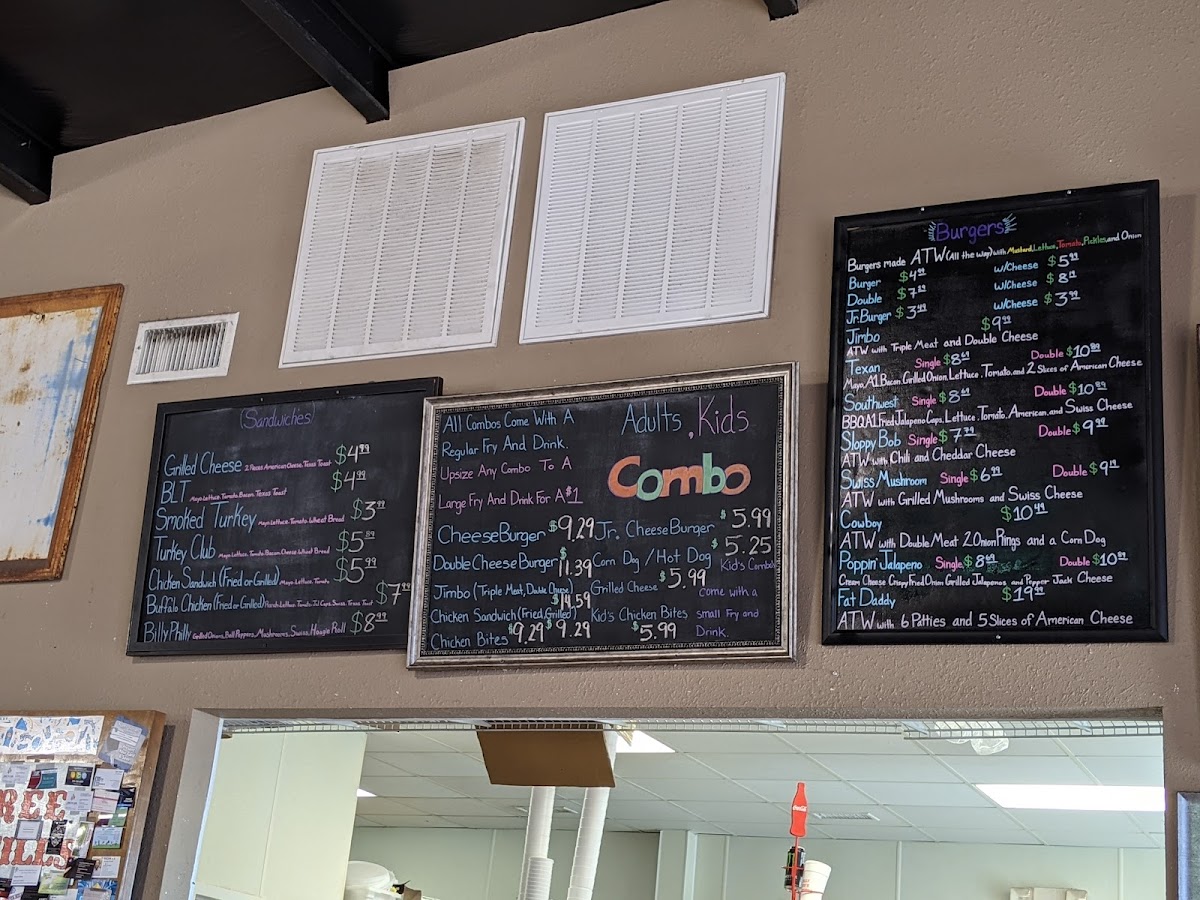 Sandwiches
Grilled Cheese 2 Pieces American Cheese, Texas Toast $4.99
BLT Mayo, Lettuce, Tomato, Bacon, Texas Toast $4.99
Smoked Turkey Mayo, Lettuce, Tomato, Wheat Bread $3.99
Turkey Club Mayo, Lettuce, Tomato, Bacon, Cheese, Wheat Bread $5.89
Chicken Sandwich (Fried or Grilled) Mayo, Lettuce, Tomato $5.99
Buffalo Chicken (Fried or Grilled) $7.99
Billy Philly Grilled Onions, Bell Peppers, Mushrooms, Swiss, Hoagie Roll $8.99
All Combos Come With A
Regular Fry And Drink.
Upsize Any Combo To A
Large Fry And Drink For A $1
Adults, Kids
Combo
CheeseBurger $9.29
Double CheeseBurger $11.39
Jimbo (Triple Meat, Double Cheese) $14.59
Chicken Sandwich (Fried, Grilled) $9.29
Chicken Bites $9.29
Jr. CheeseBurger $5.99
Corn Dog / Hot Dog $5.25
Grilled Cheese $5.99
Kid's Chicken Bites $5.99
Kid's Combo
come with a
small Fry and
Drink.
Burgers
Burgers made ATW (All the Way) with Mustard, Lettuce, Tomato, Pickles, and Onion
Burger $4.99 w/Cheese $5.99
Double w/Cheese
Jr. Burger $3.49 w/Cheese $3.99
Jimbo $9.99
ATW with Triple Meat and Double Cheese
Texan Single $8.69 Double $10.89
Mayo, A1, Bacon, Grilled Onion, Lettuce, Tomato, and 2 Slices of American Cheese
Southwest Single $8.69 Double $10.89
BBQ, A1, Fried Jalapeno Caps, Lettuce, Tomato, American, and Swiss Cheese
Sloppy Bob Single $7.79 Double $9.99
ATW with Chili and Cheddar Cheese
Swiss/Mushroom Single $6.99 Double
ATW with Grilled Mushrooms and Swiss Cheese
Cowboy $10.99
ATW with Double Meat 2 Onion Rings and a Corn Dog
Poppin' Jalapeno Single $8.69 Double $10.89
Cream Cheese Crispy Fried Onion Grilled Jalapenos and Pepper Jack Cheese
Fat Daddy $19.99
ATW with 6 Patties and 5 Slices of American Cheese
Coca-Cola